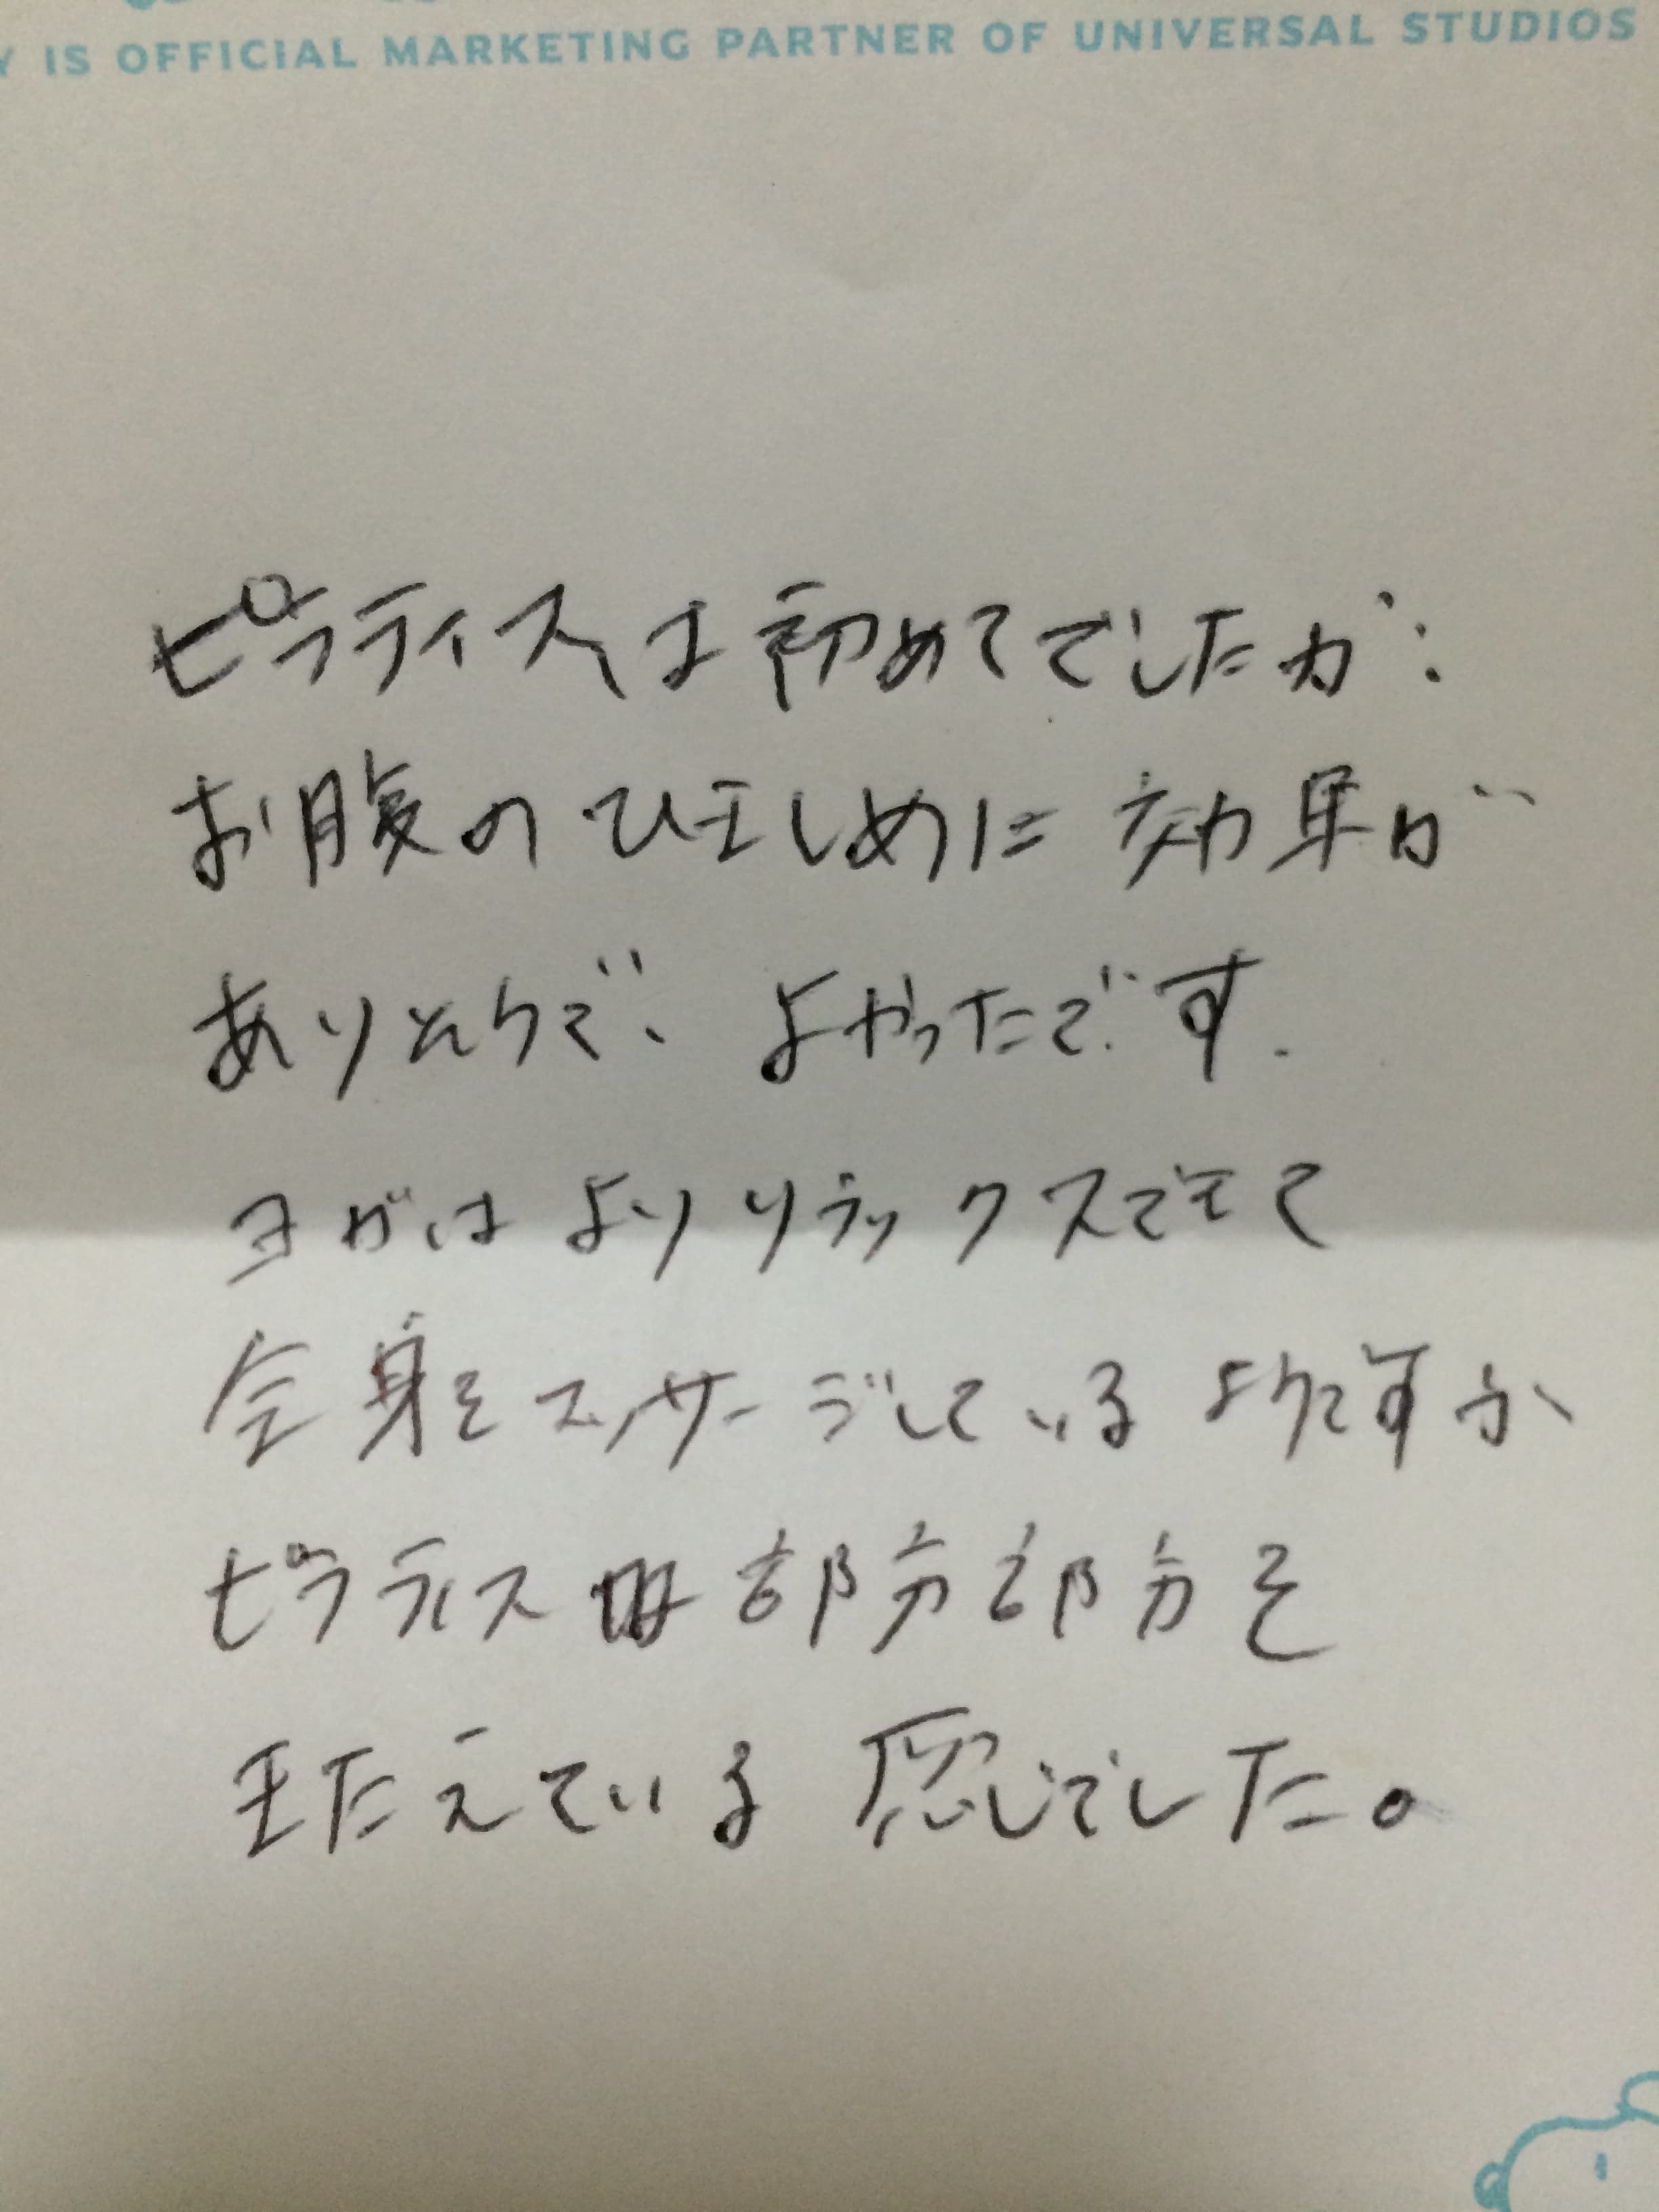 Y IS OFFICIAL MARKETING PARTNER OF UNIVERSAL STUDIOS
ピラティスは初めてでしたが、
お腹のひきしめに効果が
ありそうで、よかったです。
ヨガはよりリラックスできて
全身をマッサージしているようですが
ピラティスは部分部分を
きたえている感じでした。